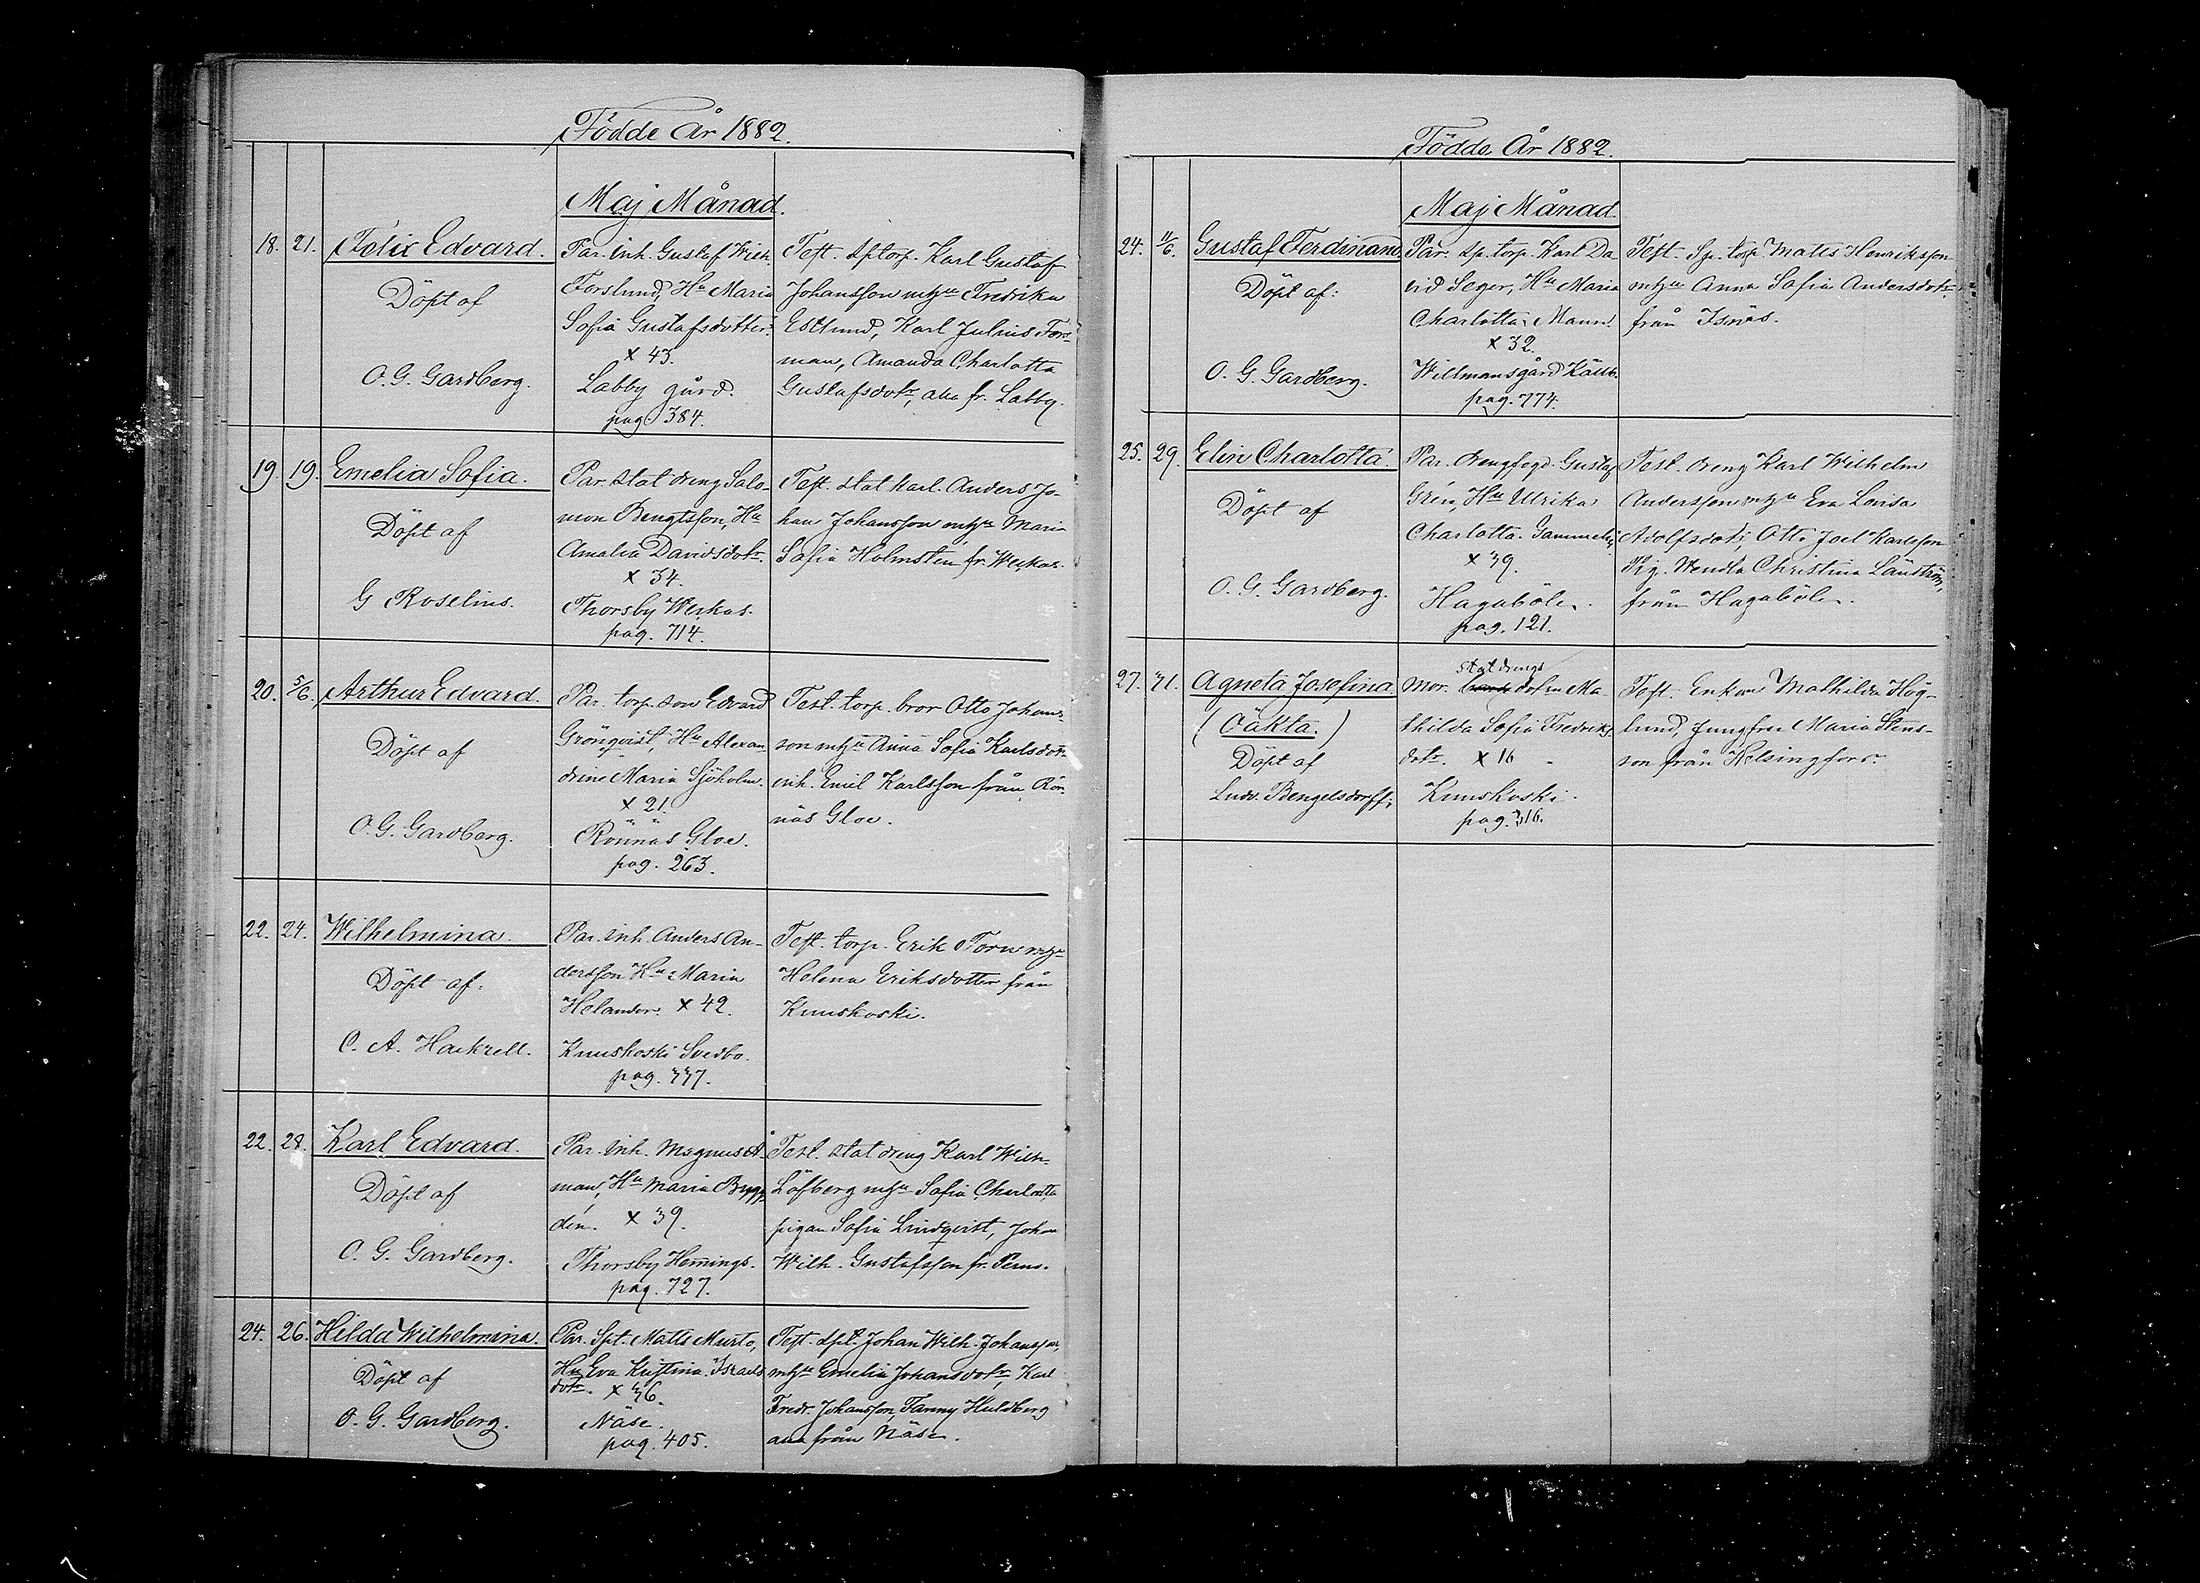 Födde År 1882.
Maj Månad.
18. 21. Felix Edvard.
Döpt af
O. G. Gardberg.
Par. inh. Gustaf Wilh.
Forslund, Hu Maria
Sofia Gustafsdotter.
x 43.
Labby gård.
pag. 384.
Test. sptorp. Karl Gustaf
Johansson m hu Fredrika
Estlund, Karl Julius Fors-
man, Amanda Charlotta
Gustafsdotr, alla fr. Labby.
19. 19. Emelia Sofia.
Döpt af
G Roselius.
Par. stat dreng Salo-
mon Bengtsson, Hu
Amalia Davidsdotr.
x 34.
Thorsby Weckas.
pag. 714.
Test. stat karl. Anders Jo-
han Johansson m hu Maria
Sofia Holmsten fr. Weckas.
20. 5/6. Arthur Edvard.
Döpt af
O. G. Gardberg.
Par. torp. son Edvard
Grönqvist, Hu Alexan
drine Maria Sjöholm.
x 21.
Rönnäs Gloe.
pag. 263.
Test. torp. bror Otto Johans-
son m hu Anna Sofia Karlsdotr
inh. Emil Karlsson från Rön
näs Gloe.
22. 24. Wilhelmina.
Döpt af.
C. A. Hackzell.
Par. inh. Anders An-
dersson Hu Maria
Helander. x 42.
Kuuskoski Svedbo.
pag. 337.
Test. torp. Erik Forn m hu
Helena Eriksdotter från
Kuuskoski.
22. 28. Karl Edvard.
Döpt af
O. G. Gardberg.
Par. inh. Magnus Å-
man, Hu Maria Brygg-
dén. x 39.
Thorsby Hemmings.
pag. 727.
Test. stat dreng Karl Wilh.
Löfberg m hu Sofia Charlotta
pigan Sofia Lindqvist, Johan
Wilh. Gustafsson fr. Perno.
24. 26. Hilda Wilhelmina.
Döpt af
O. G. Gardberg.
Par. Spt. Matts Murto,
Hu Eva Kristina Israels
dotr. x 36.
Näse.
pag. 405.
Test. spt. Johan Wilh. Johansson,
m hu Emelia Johansdotr, Karl
Fredr. Johansson, Fanny Huldberg
alla från Näse.
Födde År 1882.
Maj Månad.
24. 11/6. Gustaf Ferdinand.
Döpt af:
O. G. Gardberg.
Par. sp. torp. Karl Da
vid Seger, Hu Maria
Charlotta Maun.
x 32.
Willmansgård Källb.
pag. 774.
Test. Sp. torp Matts Henriksson
m hu Anna Sofia Andersdotr,
från Isnäs.
25. 29. Elin Charlotta.
Döpt af
O. G. Gardberg.
Par. drengfogd. Gustaf
Grén, Hu Ulrika
Charlotta Gammelin,
x 39.
Hagaböle.
pag. 121.
Test. dreng Karl Wilhelm
Andersson m hu Eva Lovisa
Adolfsdotr, Otto Joel Karlsson
Pig. Wendla Christina Länström,
från Hagaböle.
27. 31. Agneta Josefina
(Oäkta.)
Döpt af
Ludv. Bengelsdorff.
statdrengs
Mor. dotren Ma
thilda Sofia Fredriks-
dotr. x 16
Kuuskoski.
pag. 316.
Test. Enkan Mathilda Hög-
lund, Jungfru Maria Stens-
son från Helsingfors.